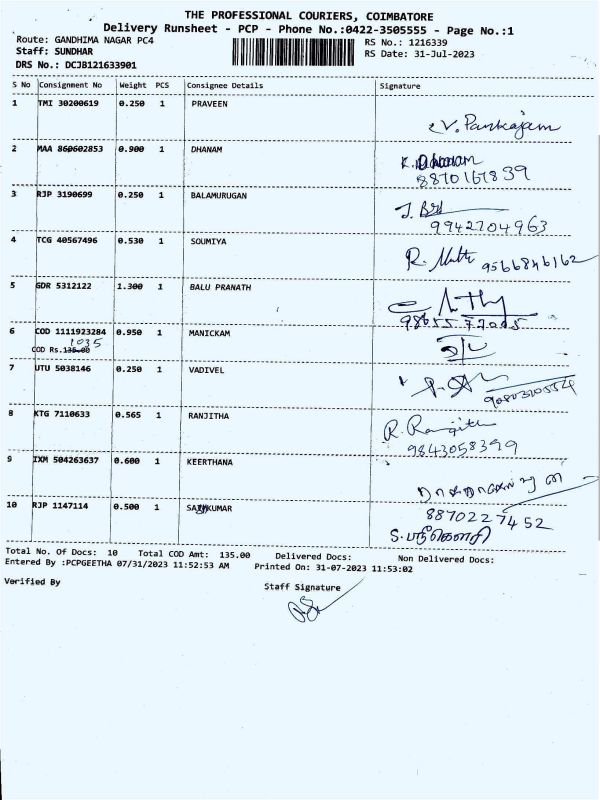 THE PROFESSIONAL COURIERS, COIMBATORE
Delivery Runsheet - PCP - Phone No.:0422-3505555 - Page No.:1
Route: GANDHIMA NAGAR PC4 RS No.: 1216339
Staff: SUNDHAR RS Date: 31-Jul-2023
DRS No.: DCJB121633901
S No Consignment No Weight PCS Consignee Details Signature
1 TMI 30200619 0.250 1 PRAVEEN
V. Pankajam
2 MAA 860602853 0.900 1 DHANAM
K. Dhanam
8870167839
3 RJP 3190699 0.250 1 BALAMURUGAN
9942704963
4 TCG 40567496 0.530 1 SOUMIYA
9566846162
5 GDR 5312122 1.300 1 BALU PRANATH
98655 77005
6 COD 1111923284 0.950 1 MANICKAM
1035
COD Rs.135.00
7 UTU 5038146 0.250 1 VADIVEL
8 KTG 7110633 0.565 1 RANJITHA
R. Ranjith
9843058399
9 IXM 504263637 0.600 1 KEERTHANA
10 RJP 1147114 0.500 1 KUMAR
8870227452
Total No. Of Docs: 10 Total COD Amt: 135.00 Delivered Docs: Non Delivered Docs:
Entered By :PCPGEETHA 07/31/2023 11:52:53 AM Printed On: 31-07-2023 11:53:02
Verified By Staff Signature